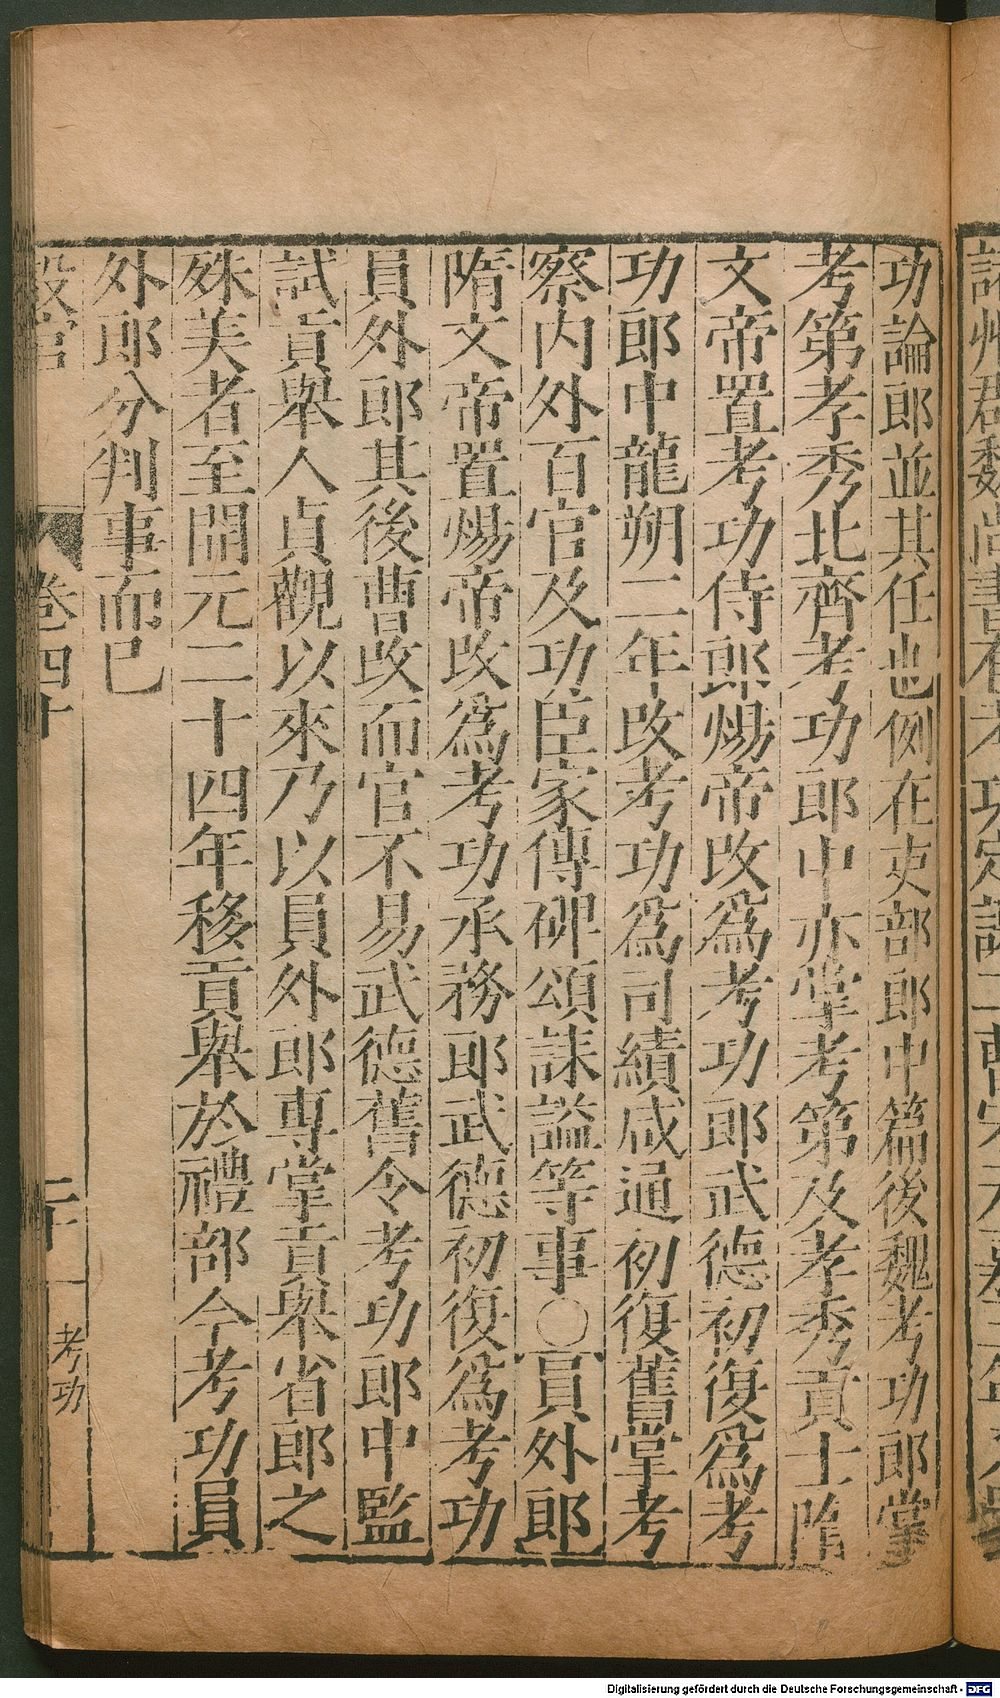 功論郎並其任也例在吏部郎中篇後魏考功郎掌
考第孝秀北齊考功郎中亦掌考第及孝秀貢士隋
文帝置考功侍郎煬帝改爲考功郎武德初復爲考
功郎中龍朔二年改考功爲司績咸通初復舊掌考
察内外百官及功臣家傳碑頌誄謚等事○員外郎
隋文帝置煬帝改爲考功承務郎武德初復爲考功
員外郎其後曹改而官不易武德舊令考功郎中監
試貢舉人貞觀以來乃以員外郎專掌貢舉省郎之
殊美者至開元二十四年移貢舉於禮部今考功員
外郎分判事而已
設官 卷四十 二十一 考功
Digitalisierung gefördert durch die Deutsche Forschungsgemeinschaft - DFG